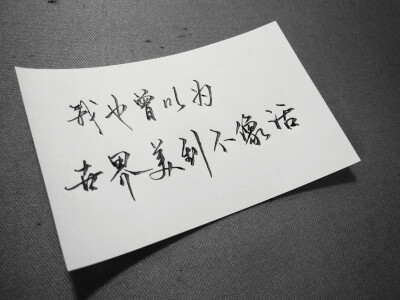 我也曾以为
世界美到不像话